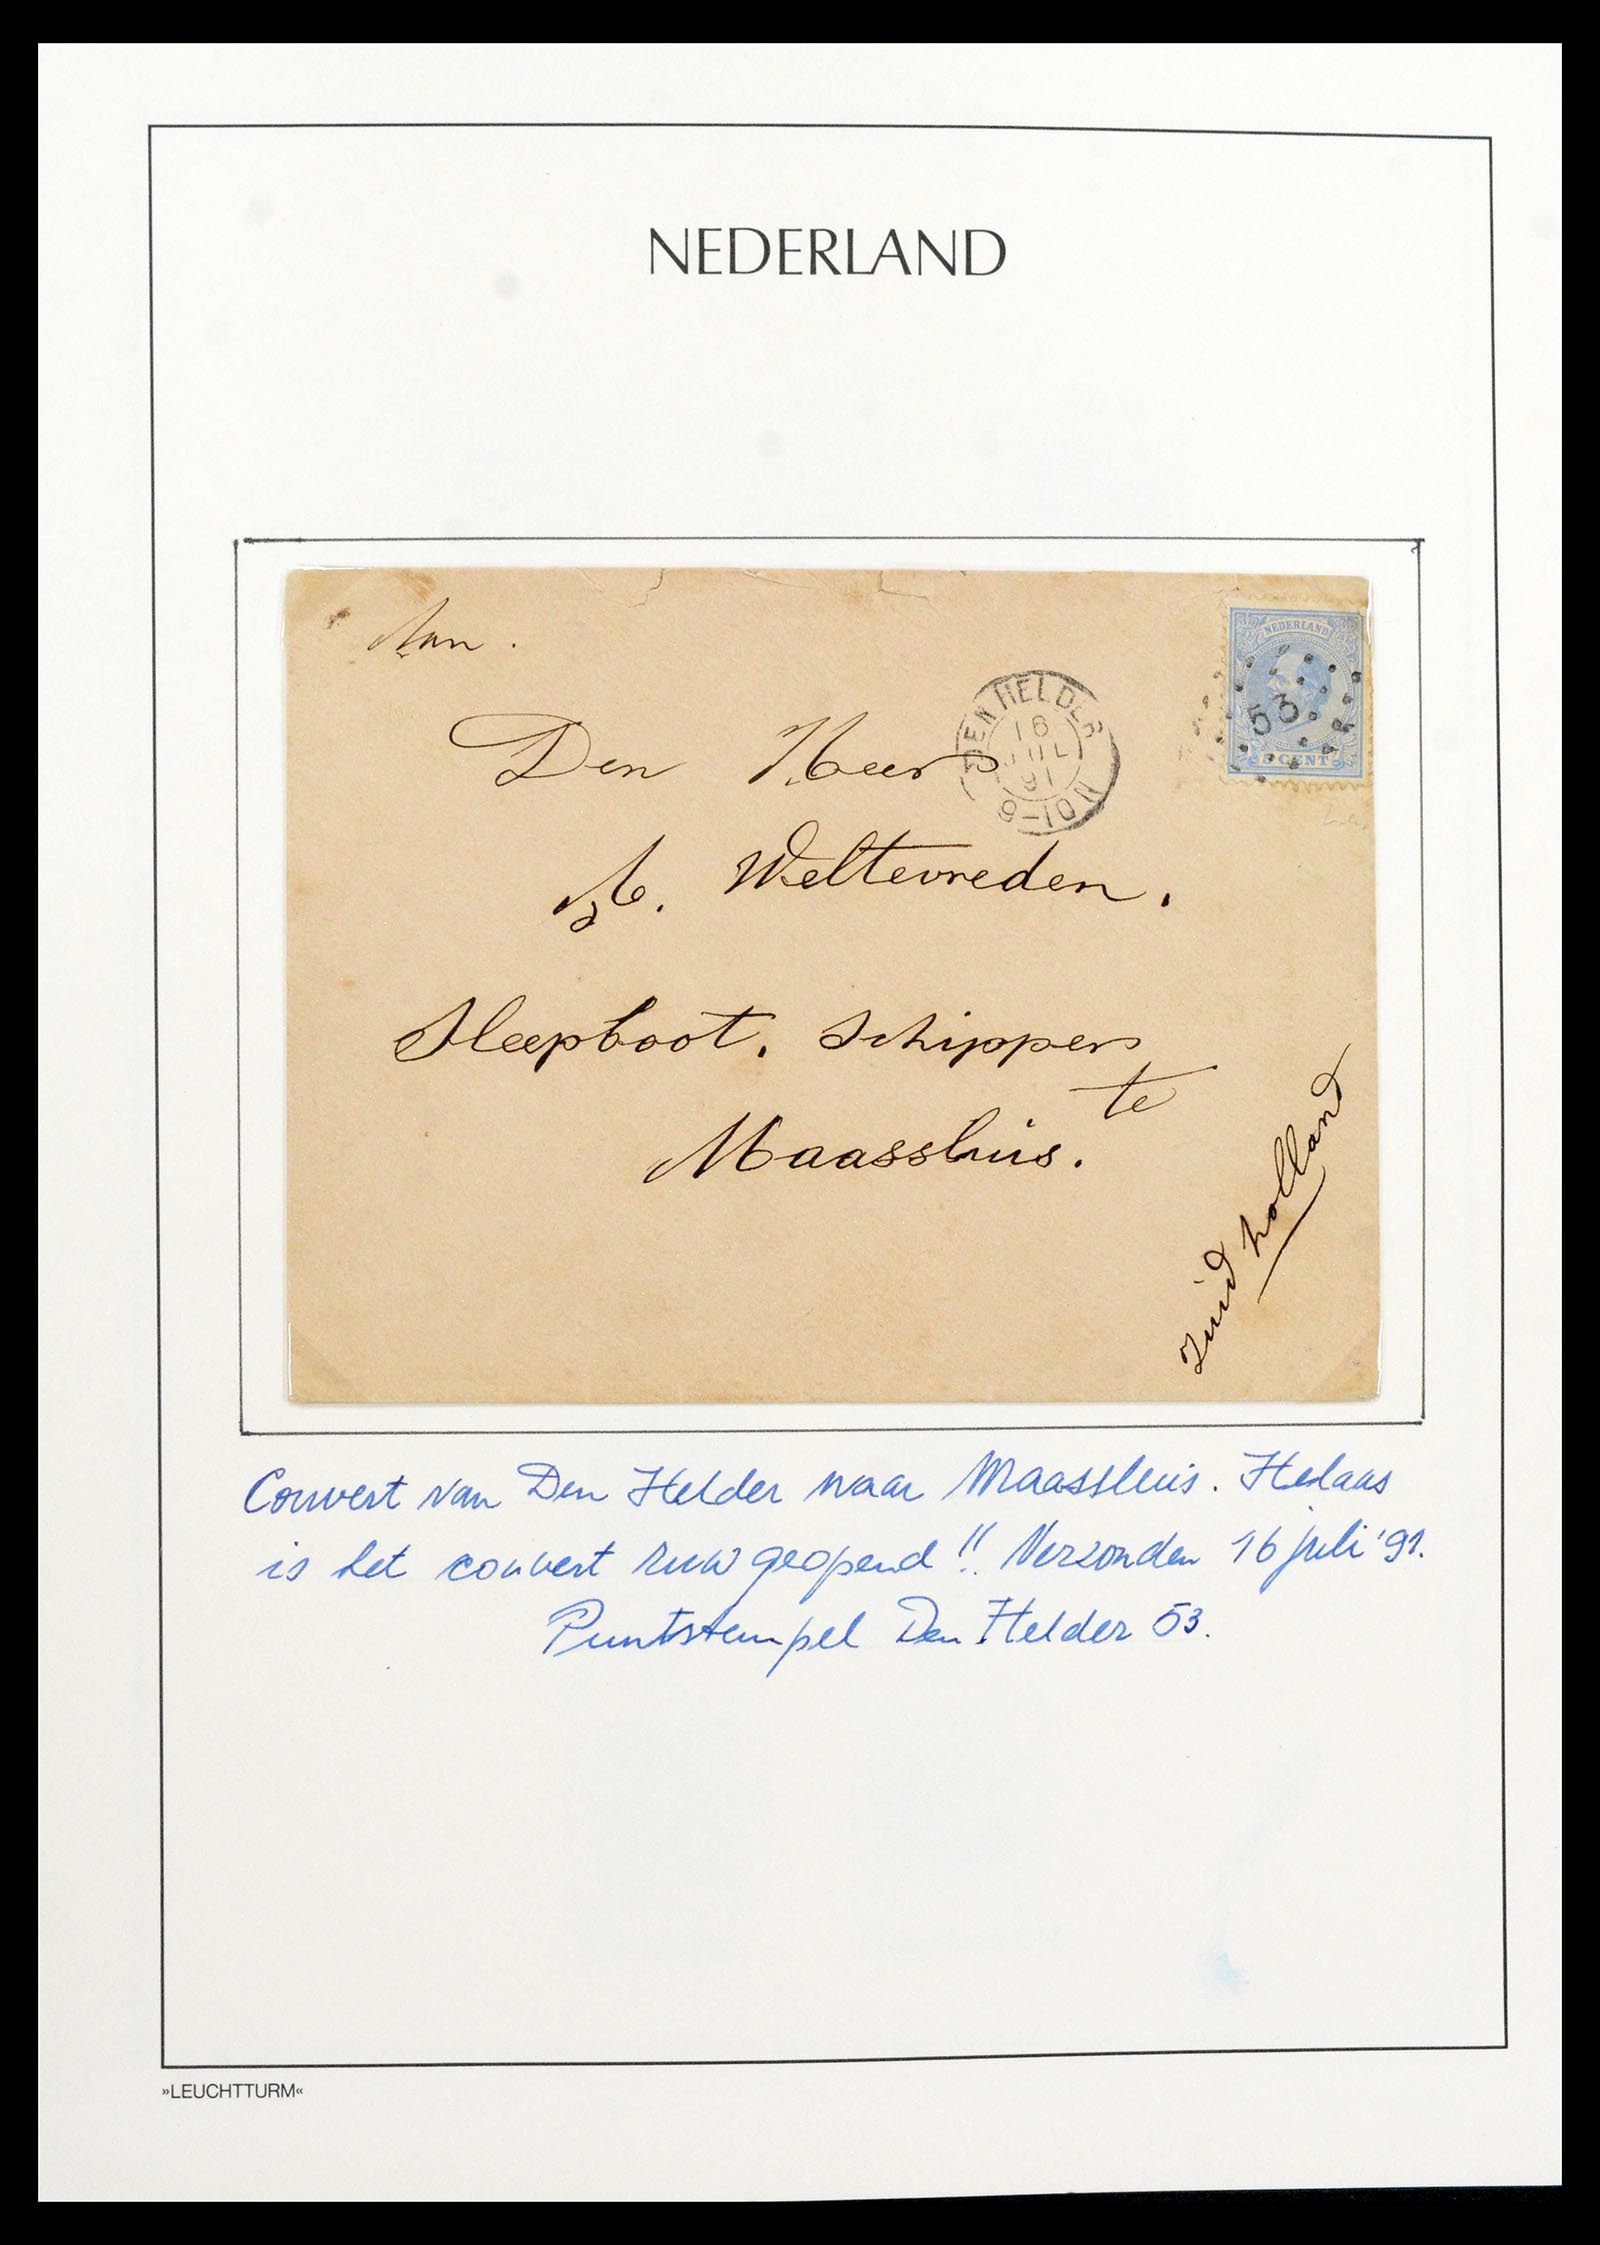 NEDERLAND
Aan.
NEDERLAND
53
5 CENT
DEN HELDER
16
JUL
91
9-10N
Den Heer
A. Weltevreden.
Sleepboot. Schipper
te
Maassluis.
Zuid holland
Couvert van Den Helder naar Maassluis. Helaas
is het couvert ruw geopend!! Verzonden 16 juli '91.
Puntstempel Den Helder 53.
»LEUCHTTURM«